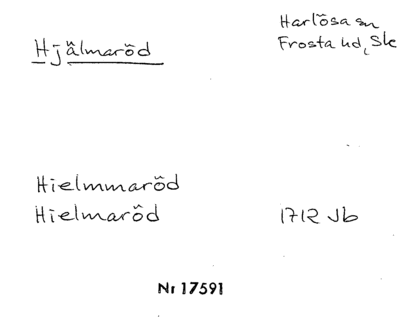 Hjälmaröd
Harlösa sn
Frosta hd, Sk
Hielmmaröd
Hielmaröd 1712 Jb
Nr 17591